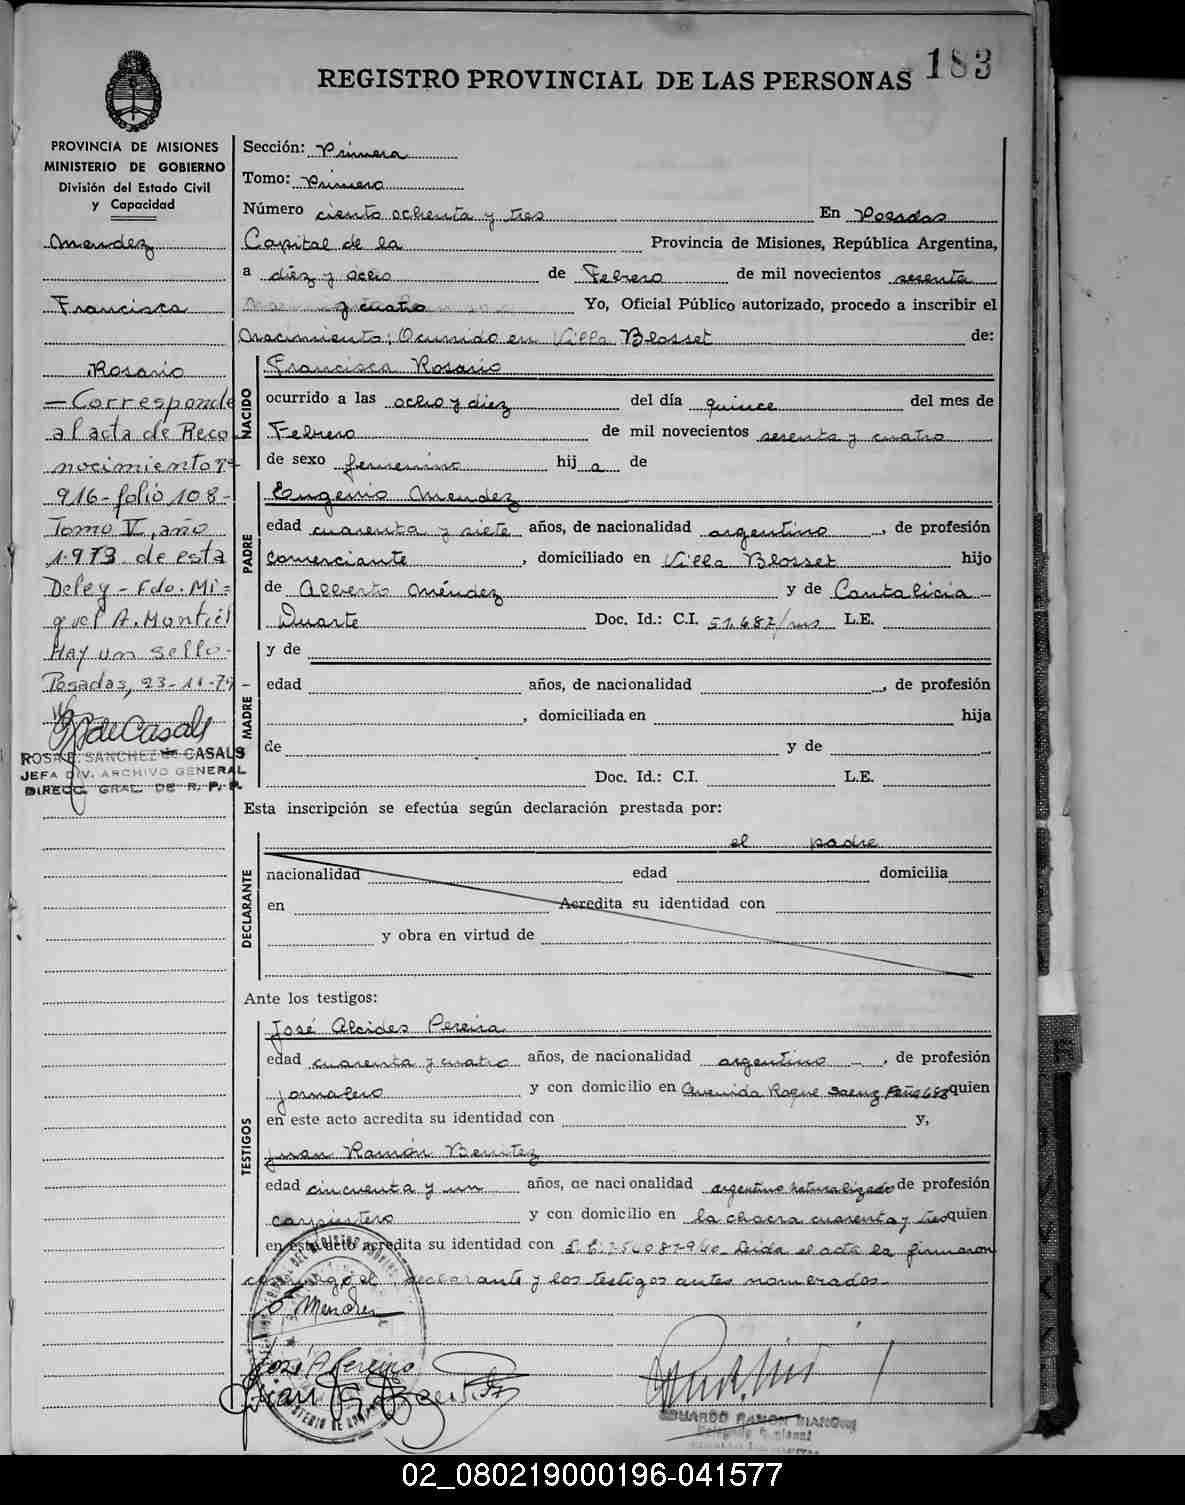 183
REGISTRO PROVINCIAL DE LAS PERSONAS
PROVINCIA DE MISIONES
MINISTERIO DE GOBIERNO
División del Estado Civil
y Capacidad
Mendez
Francisca
Rosario
— Corresponde
al acta de Reco
nocimiento nº
916 - folio 108 -
Tomo V, año
1.973 de esta
Deleg - Fdo. Mi=
guel A. Montiel
Hay un sello -
Posadas, 23-11-79 -
de Casals
ROSA E. SANCHEZ de CASALS
JEFA DIV. ARCHIVO GENERAL
DIRECC. GRAL. DE R. P. P.
Sección: Primera
Tomo: Primero
Número ciento ochenta y tres En Posadas
Capital de la Provincia de Misiones, República Argentina,
a diez y ocho de Febrero de mil novecientos sesenta
y cuatro Yo, Oficial Público autorizado, procedo a inscribir el
nacimiento; Ocurrido en Villa Blosset de:
NACIDO
Francisca Rosario
ocurrido a las ocho y diez del día quince del mes de
Febrero de mil novecientos sesenta y cuatro
de sexo femenino hij a de
PADRE
Eugenio Mendez
edad cuarenta y siete años, de nacionalidad argentino, de profesión
comerciante, domiciliado en Villa Blosset hijo
de Alberto Méndez y de Cantalicia
Duarte Doc. Id.: C.I. 51.687/mns L.E.
MADRE
y de
edad años, de nacionalidad , de profesión
, domiciliada en hija
de y de
Doc. Id.: C.I. L.E.
Esta inscripción se efectúa según declaración prestada por:
DECLARANTE
el padre
nacionalidad edad domicilia
en Acredita su identidad con
y obra en virtud de
Ante los testigos:
TESTIGOS
José Alcides Pereira
edad cuarenta y cuatro años, de nacionalidad argentino -, de profesión
jornalero y con domicilio en Avenida Roque Saenz Peña 688 quien
en este acto acredita su identidad con y,
Juan Ramón Benitez
edad cincuenta y un años, de nacionalidad argentino naturalizado de profesión
carpintero y con domicilio en la chacra cuarenta y tres quien
en este acto acredita su identidad con Leida el acta la firmaron
conmigo el declarante y los testigos antes nomerados -
E Mendez
José A Pereira
Juan R Benitez
EDUARDO RAMON
02_080219000196-041577